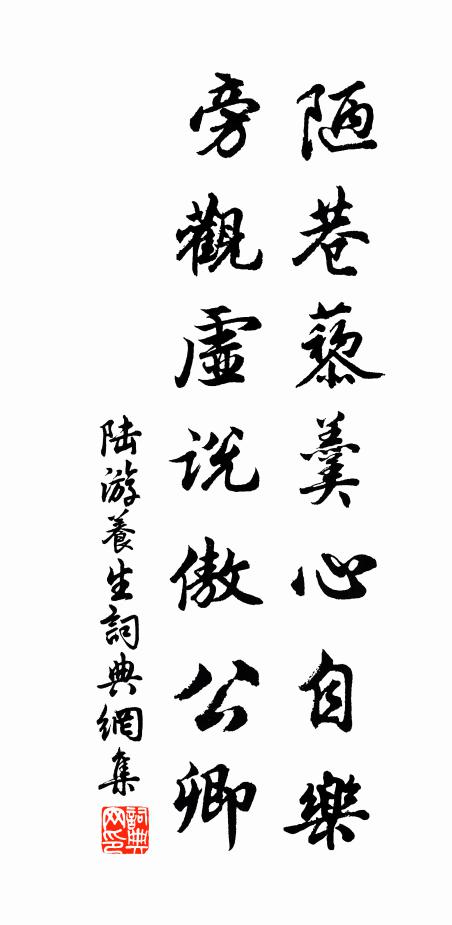 陋巷藜羹心自樂
旁觀虛說傲公卿
陆游養生詞典網集
詞典网印